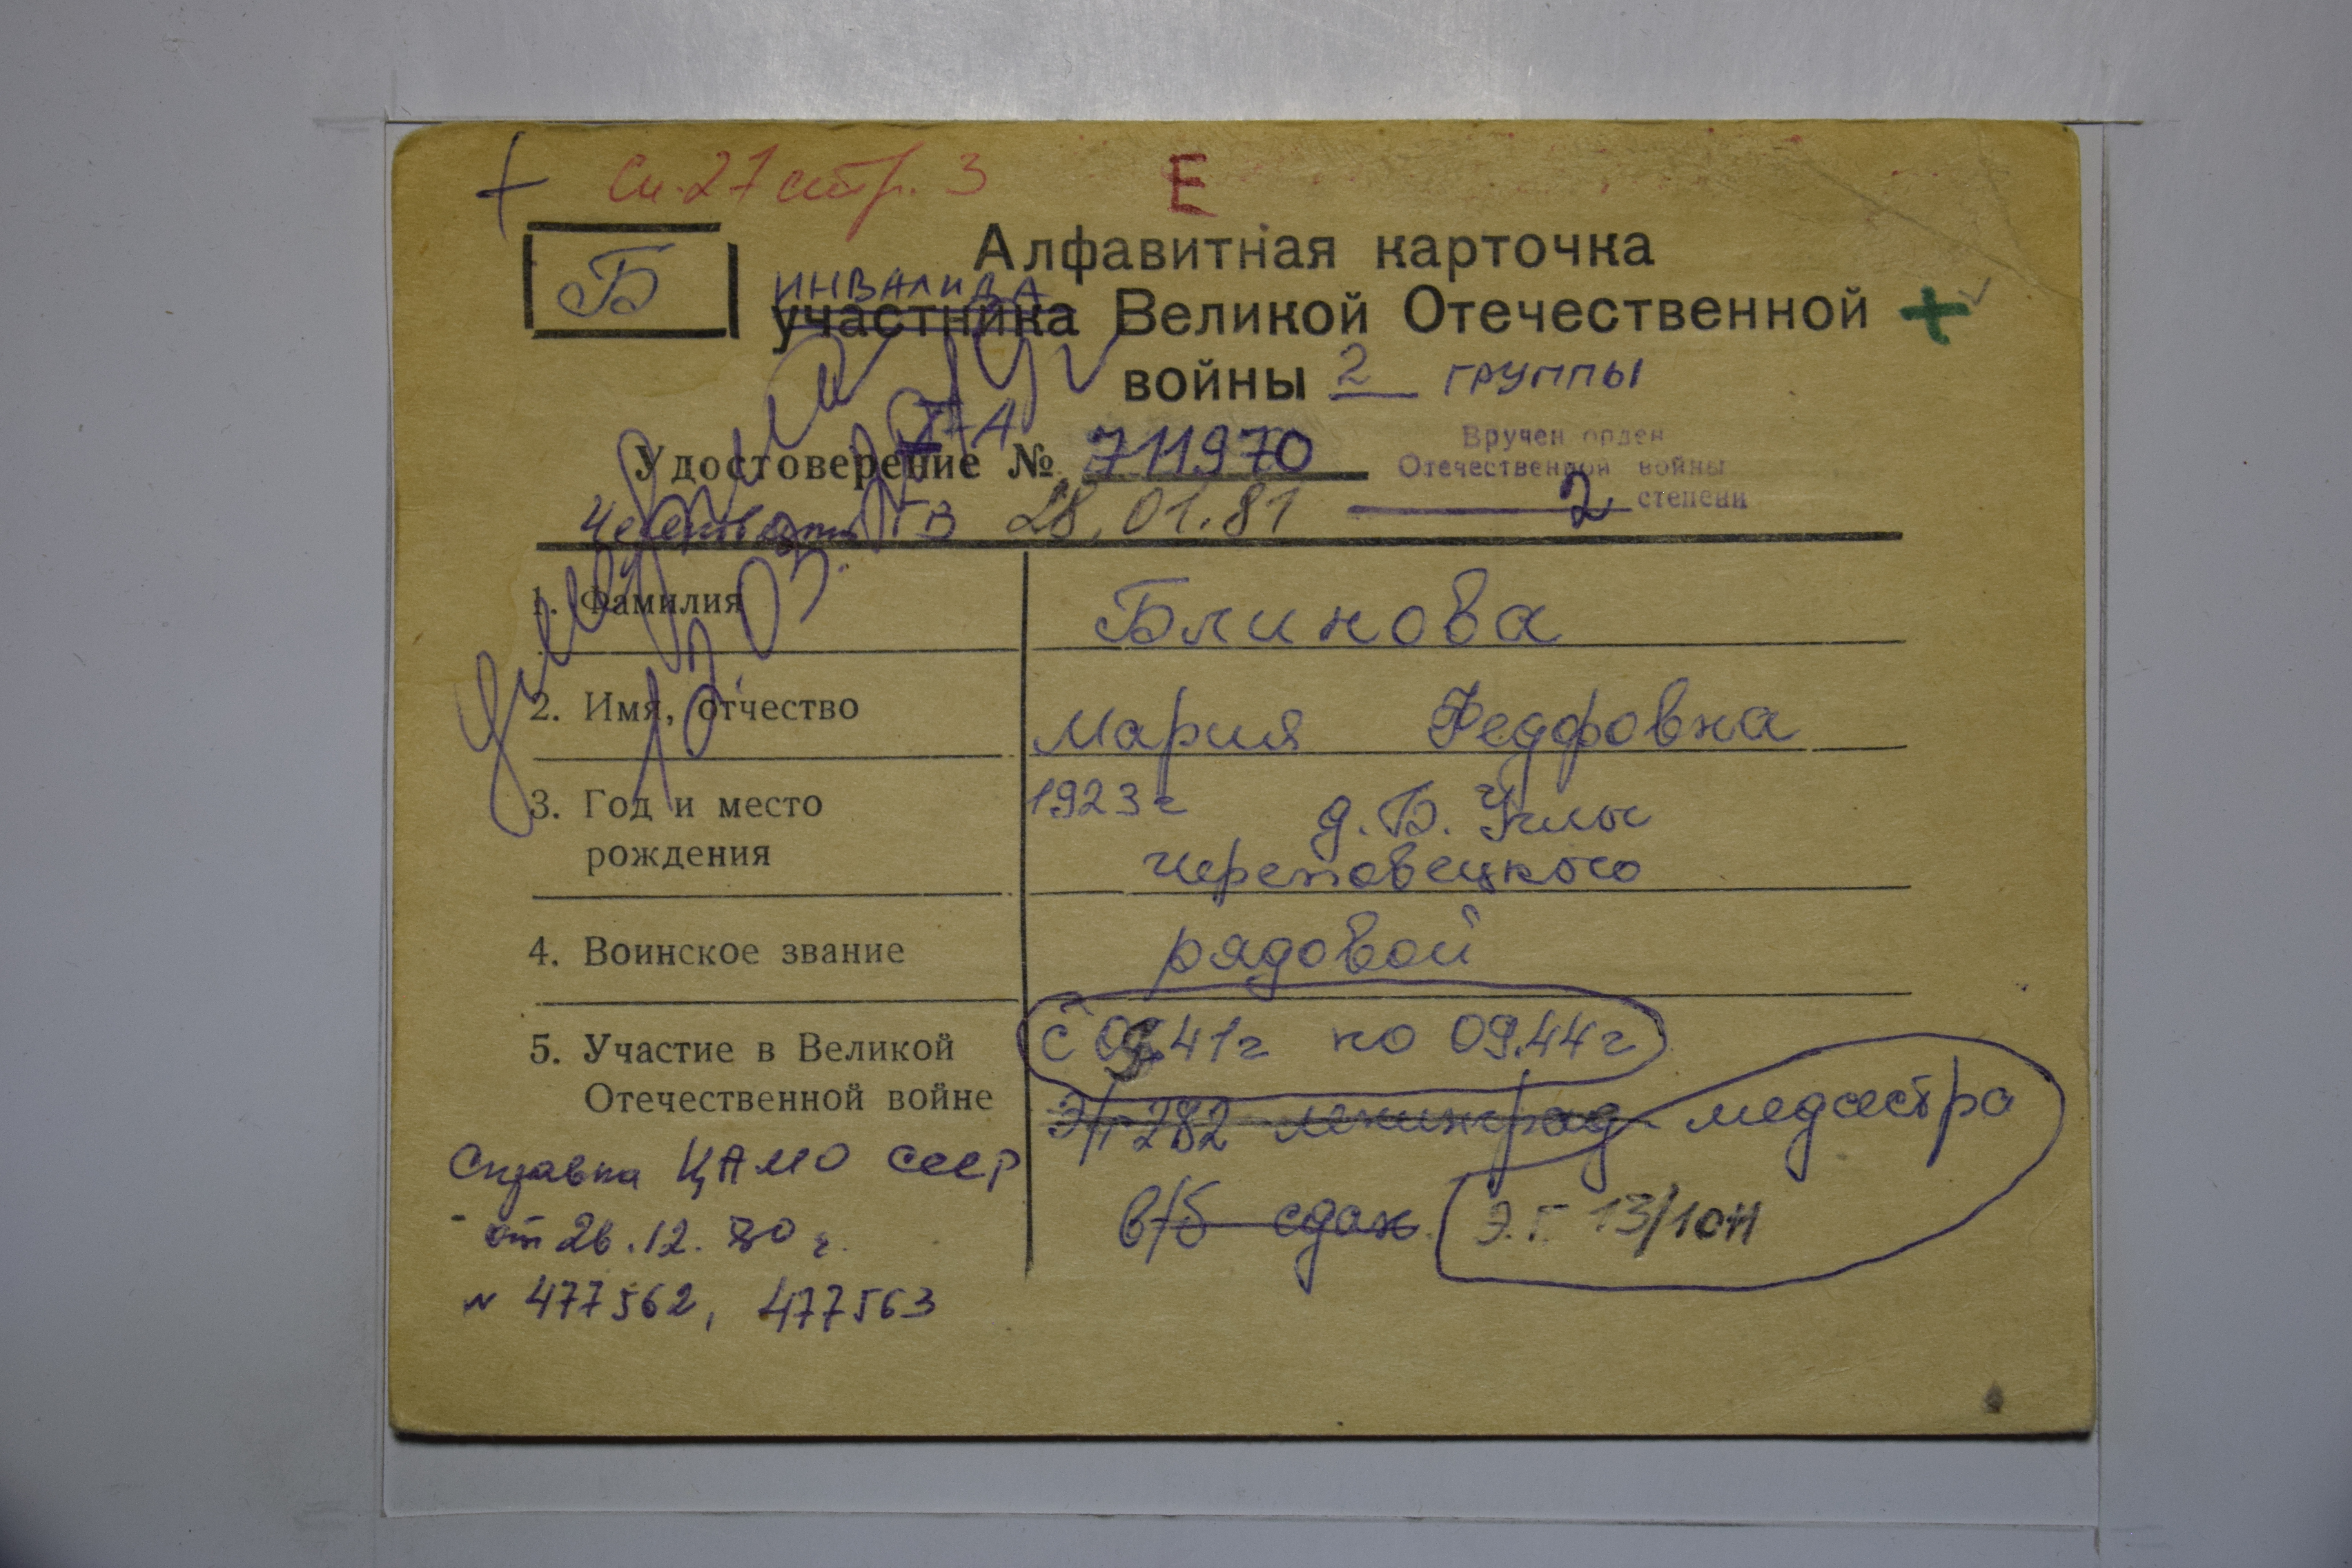 Сп. 27 стр. 3
Е
Б
Алфавитная карточка
инвалида
участника Великой Отечественной
войны 2 группы
Удостоверение № 711970
Вручен орден
Отечественной войны
2 степени
28.01.81
1. Фамилия
Блинова
2. Имя, отчество
Мария Федоровна
3. Год и место
рождения
1923г д. Б. Углы
Череповецкого
4. Воинское звание
рядовой
5. Участие в Великой
Отечественной войне
41г по 09.44г
Э/г 282 Ленинград медсестра
Э.Г 13/10Н
Справка ЦАМО СССР
от 26.12.80 г.
N 477562, 477563